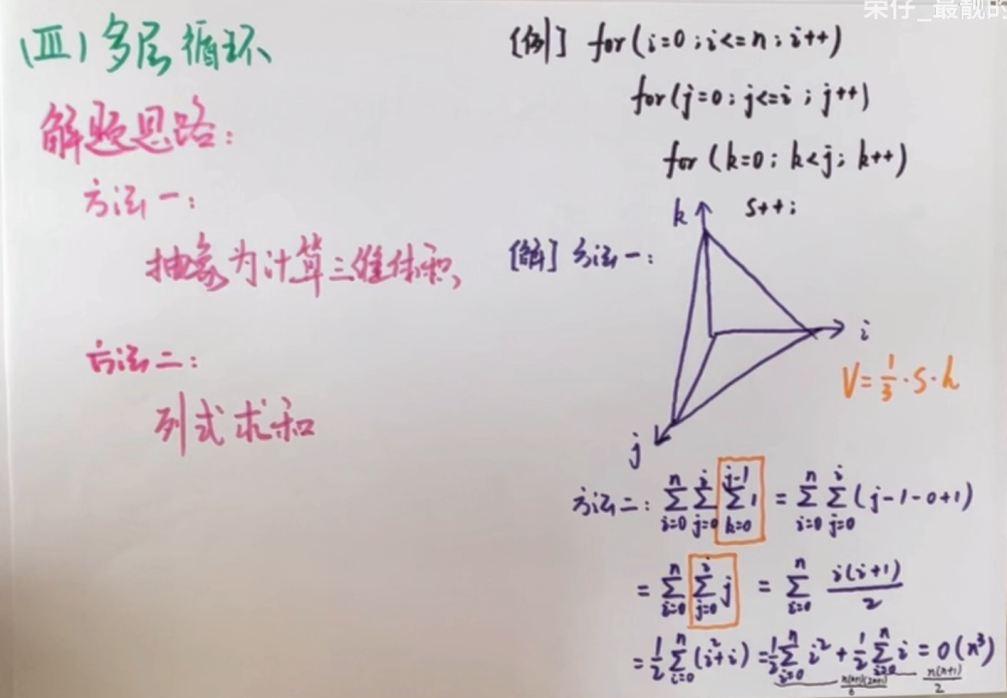 荣仔_最靓的
(三)多层循环
解题思路:
方法一:
抽象为计算三维体积
方法二:
列式求和
[例] for(i=0;i<=n;i++)
for(j=0;j<=i;j++)
for(k=0;k<j;k++)
s++;
[解] 方法一:
k
i
j
V=1/3·s·h
方法二: ∑_{i=0}^{n} ∑_{j=0}^{i} ∑_{k=0}^{j-1} 1 = ∑_{i=0}^{n} ∑_{j=0}^{i} (j-1-0+1)
= ∑_{i=0}^{n} ∑_{j=0}^{i} j = ∑_{i=0}^{n} i(i+1)/2
= 1/2 ∑_{i=0}^{n} (i²+i) = 1/2 ∑_{i=0}^{n} i² + 1/2 ∑_{i=0}^{n} i = O(n³)
n(n+1)(2n+1)/6 n(n+1)/2